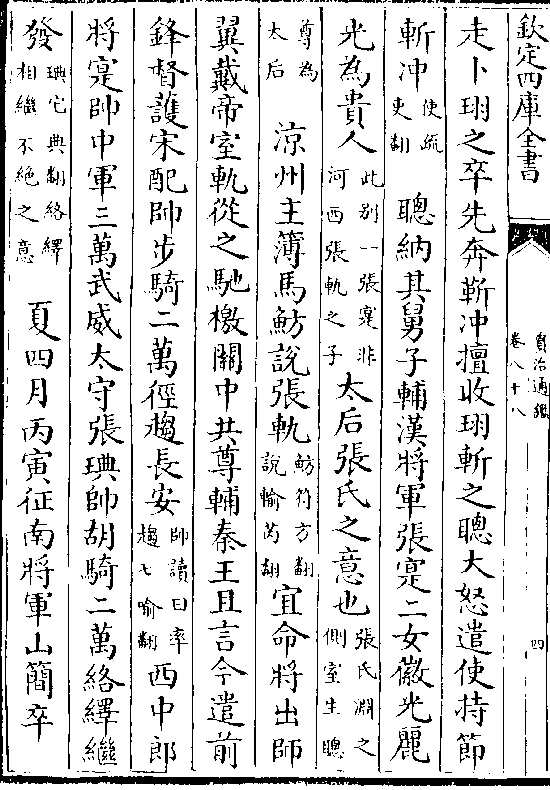 欽定四庫全書
資治通鑑
卷八十八
四
走卜珝之卒先奔靳冲擅收珝斬之聰大怒遣使持節
斬冲使疏吏翻聰納其舅子輔漢將軍張寔二女徽光麗
光為貴人此别一張寔非河西張軌之子太后張氏之意也張氏淵之側室生聰
尊為太后涼州主簿馬魴說張軌魴符方翻說輸芮翻宜命將出師
翼戴帝室軌從之馳檄關中共尊輔秦王且言今遣前
鋒督護宋配帥步騎二萬徑趨長安帥讀曰率趨七喻翻西中郎
將寔帥中軍三萬武威太守張琠帥胡騎二萬絡繹繼
發琠它典翻絡繹相繼不絶之意夏四月丙寅征南將軍山簡卒